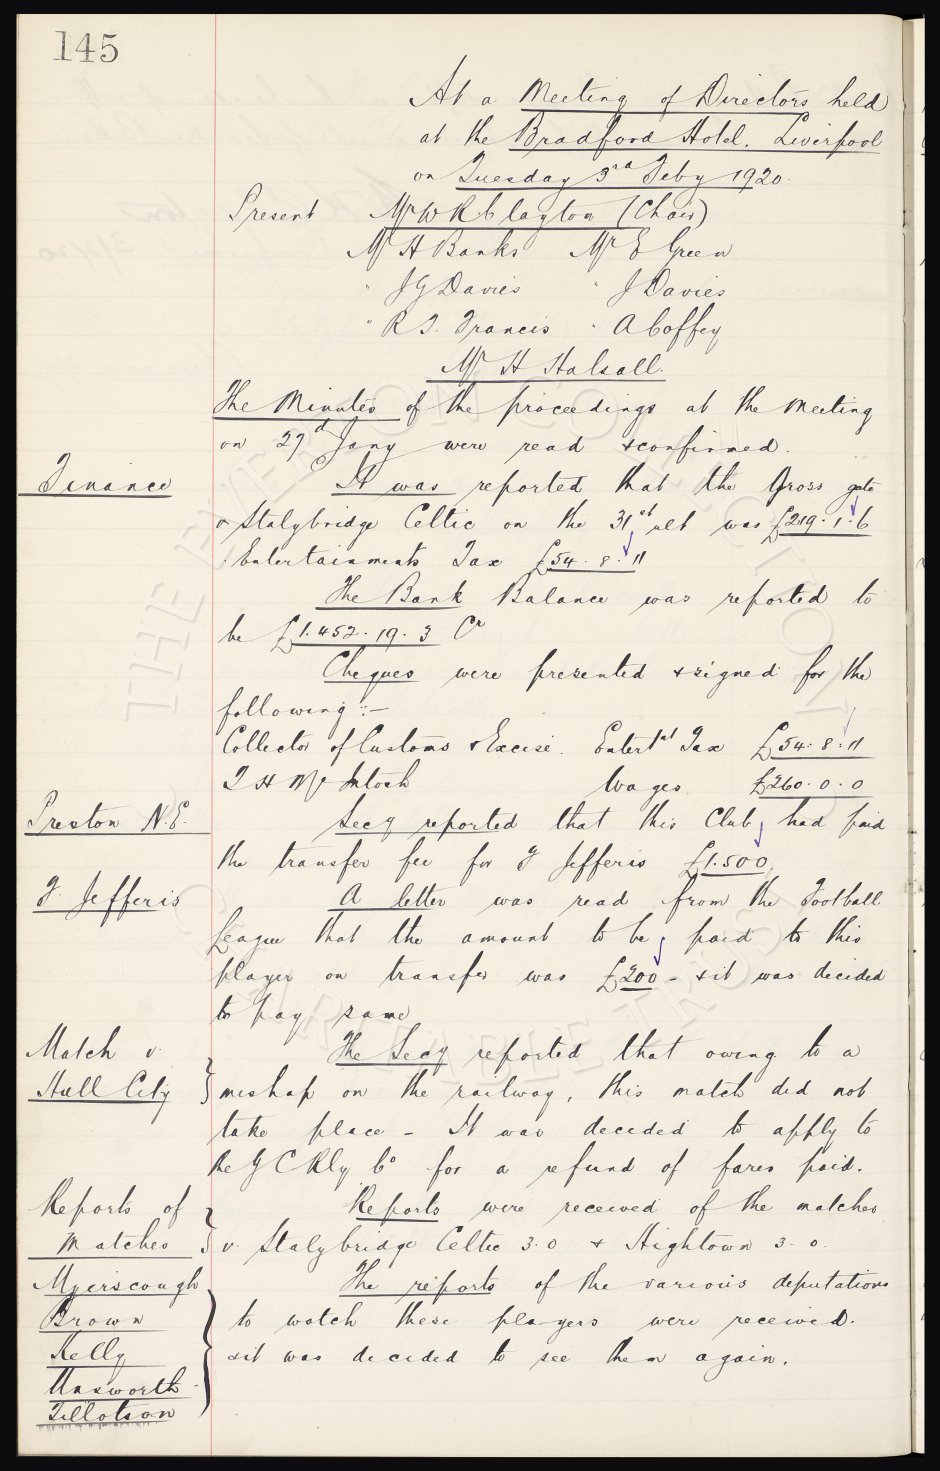 145
At a Meeting of Directors held
at the Bradford Hotel. Liverpool
on Tuesday 3rd Feby 1920.
Present Mr W R Clayton (Chair)
Mr H Banks Mr E Green
" J G Davies " J Davies
" R T. Francis " A Coffey
Mr H Halsall.
The Minutes of the proceedings at the meeting
on 27d Jany were read & confirmed.
Finance It was reported that the Gross gate
v Stalybridge Celtic on the 31st ult was £219.1.6
Entertainments Tax £54.8.11
The Bank Balance was reported to
be £1.452.19.3 Cr
Cheques were presented & signed for the
following :-
Collector of Customs & Excise. Entertnt Tax £54.8.11
T H McIntosh Wages. £260.0.0
Preston N.E. Secy reported that this Club had paid
the transfer fee for F Jefferis £1.500
F. Jefferis A letter was read from the Football
League that the amount to be paid to this
player on transfer was £200 - & it was decided
to pay same
Match v. The Secy reported that owing to a
Hull City mishap on the railway, this match did not
take place - It was decided to apply to
the G C Rly Co for a refund of fares paid.
Reports of Reports were received of the matches
Matches v. Stalybridge Celtic 3.0 & Hightown 3-0.
Myerscough The reports of the various deputations
Brown to watch these players were received.
Kelly & it was decided to see them again.
Unsworth
Tillotson
THE EVERTON COLLECTION
CHARITABLE TRUST